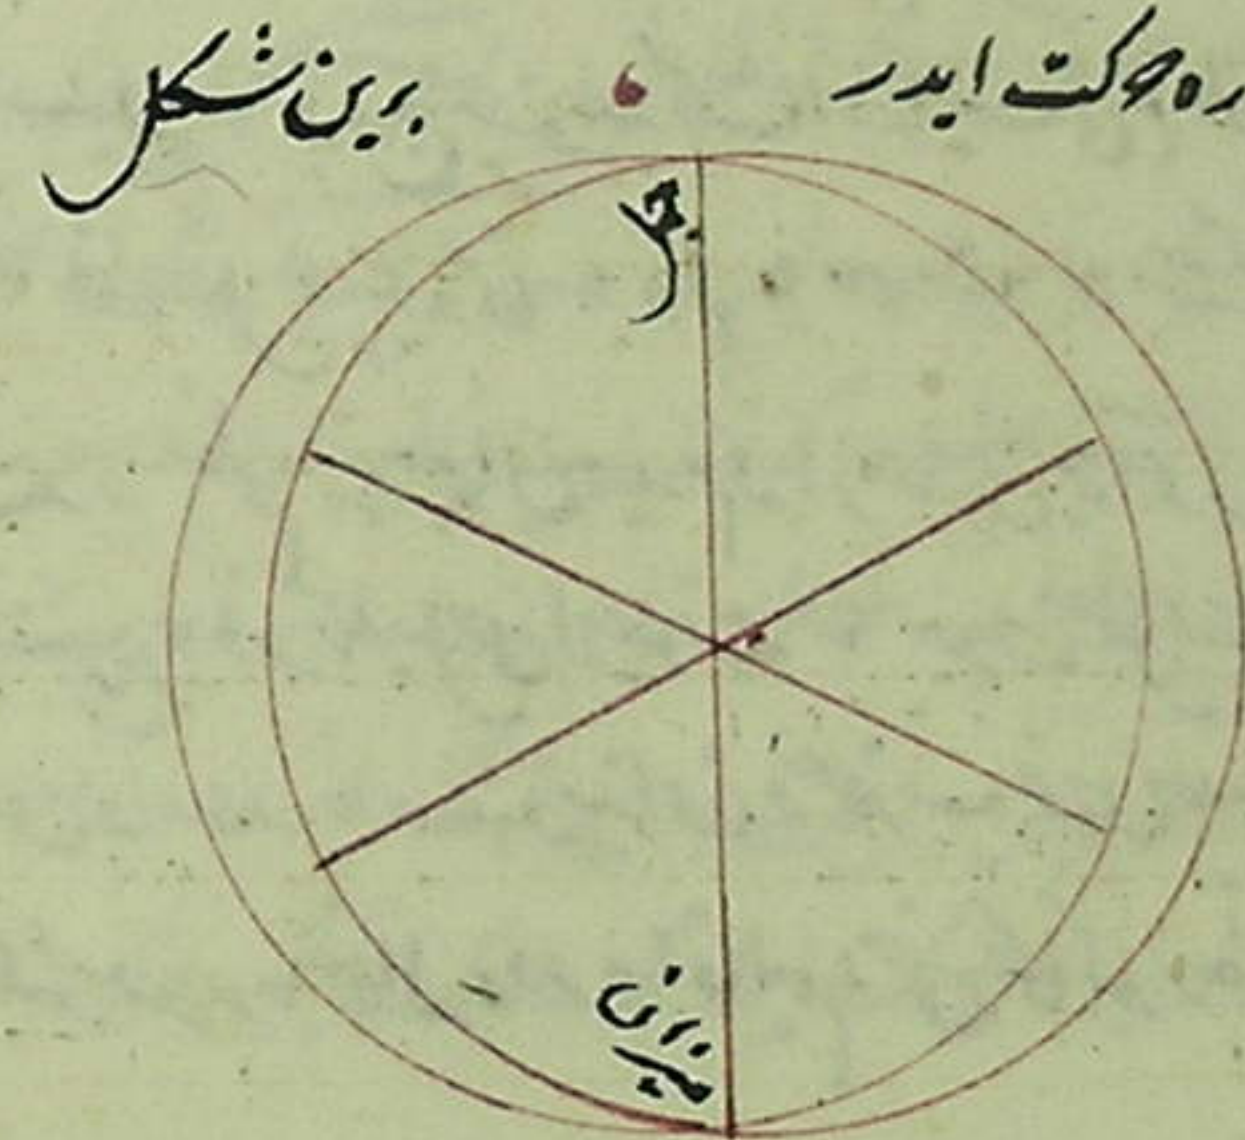 حركت ايدر برين شكل
حمل
ميزان